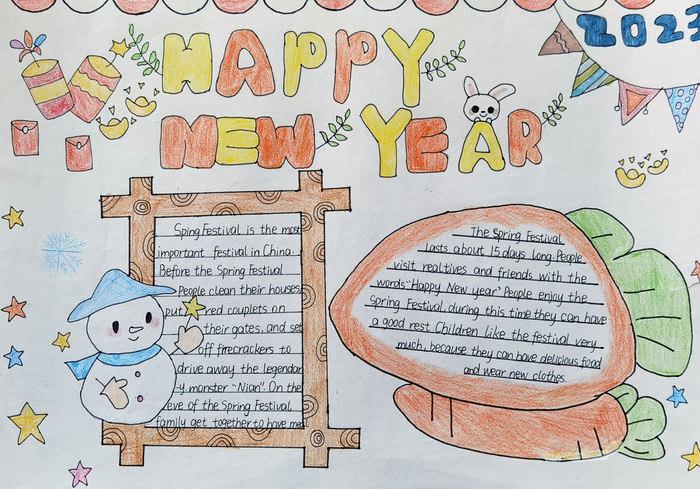 HAPPY
2023
NEW YEAR
Sping Festival is the most
important festival in China
Before the Spring Festival
People clean their houses
put red couplets on
their gates, and set
off firecrackers to
drive away the legendar
-y monster "Nian". On the
eve of the Spring Festival,
family get together to have mea
The Spring Festival
lasts about 15 days long. People
visit realtives and friends with the
words "Happy New year' People enjoy the
Spring Festival, during this time they can have
a good rest. Children like the festival very
much, because they can have delicious food
and wear new clothes